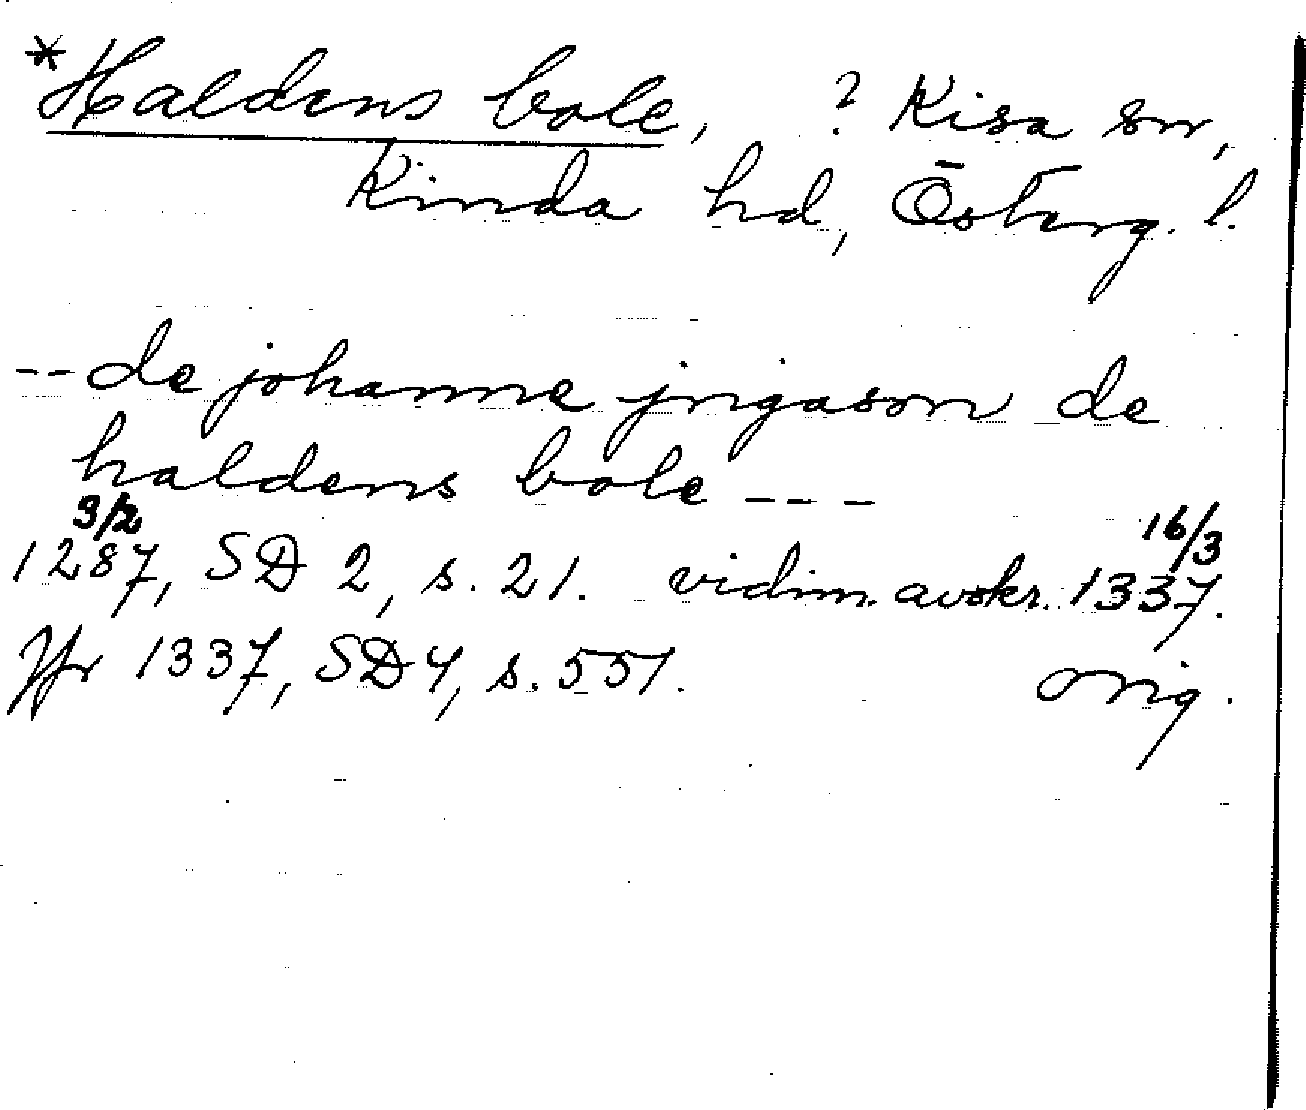 *Haldens bole, ? Kisa sn,
Kinda hd, Österg. l.
-- de johanne jngason de
haldens bole ---
9/2 16/3
1287, SD 2, s. 21. vidim. avskr. 1337.
Jfr 1337, SD 4, s. 551. orig.